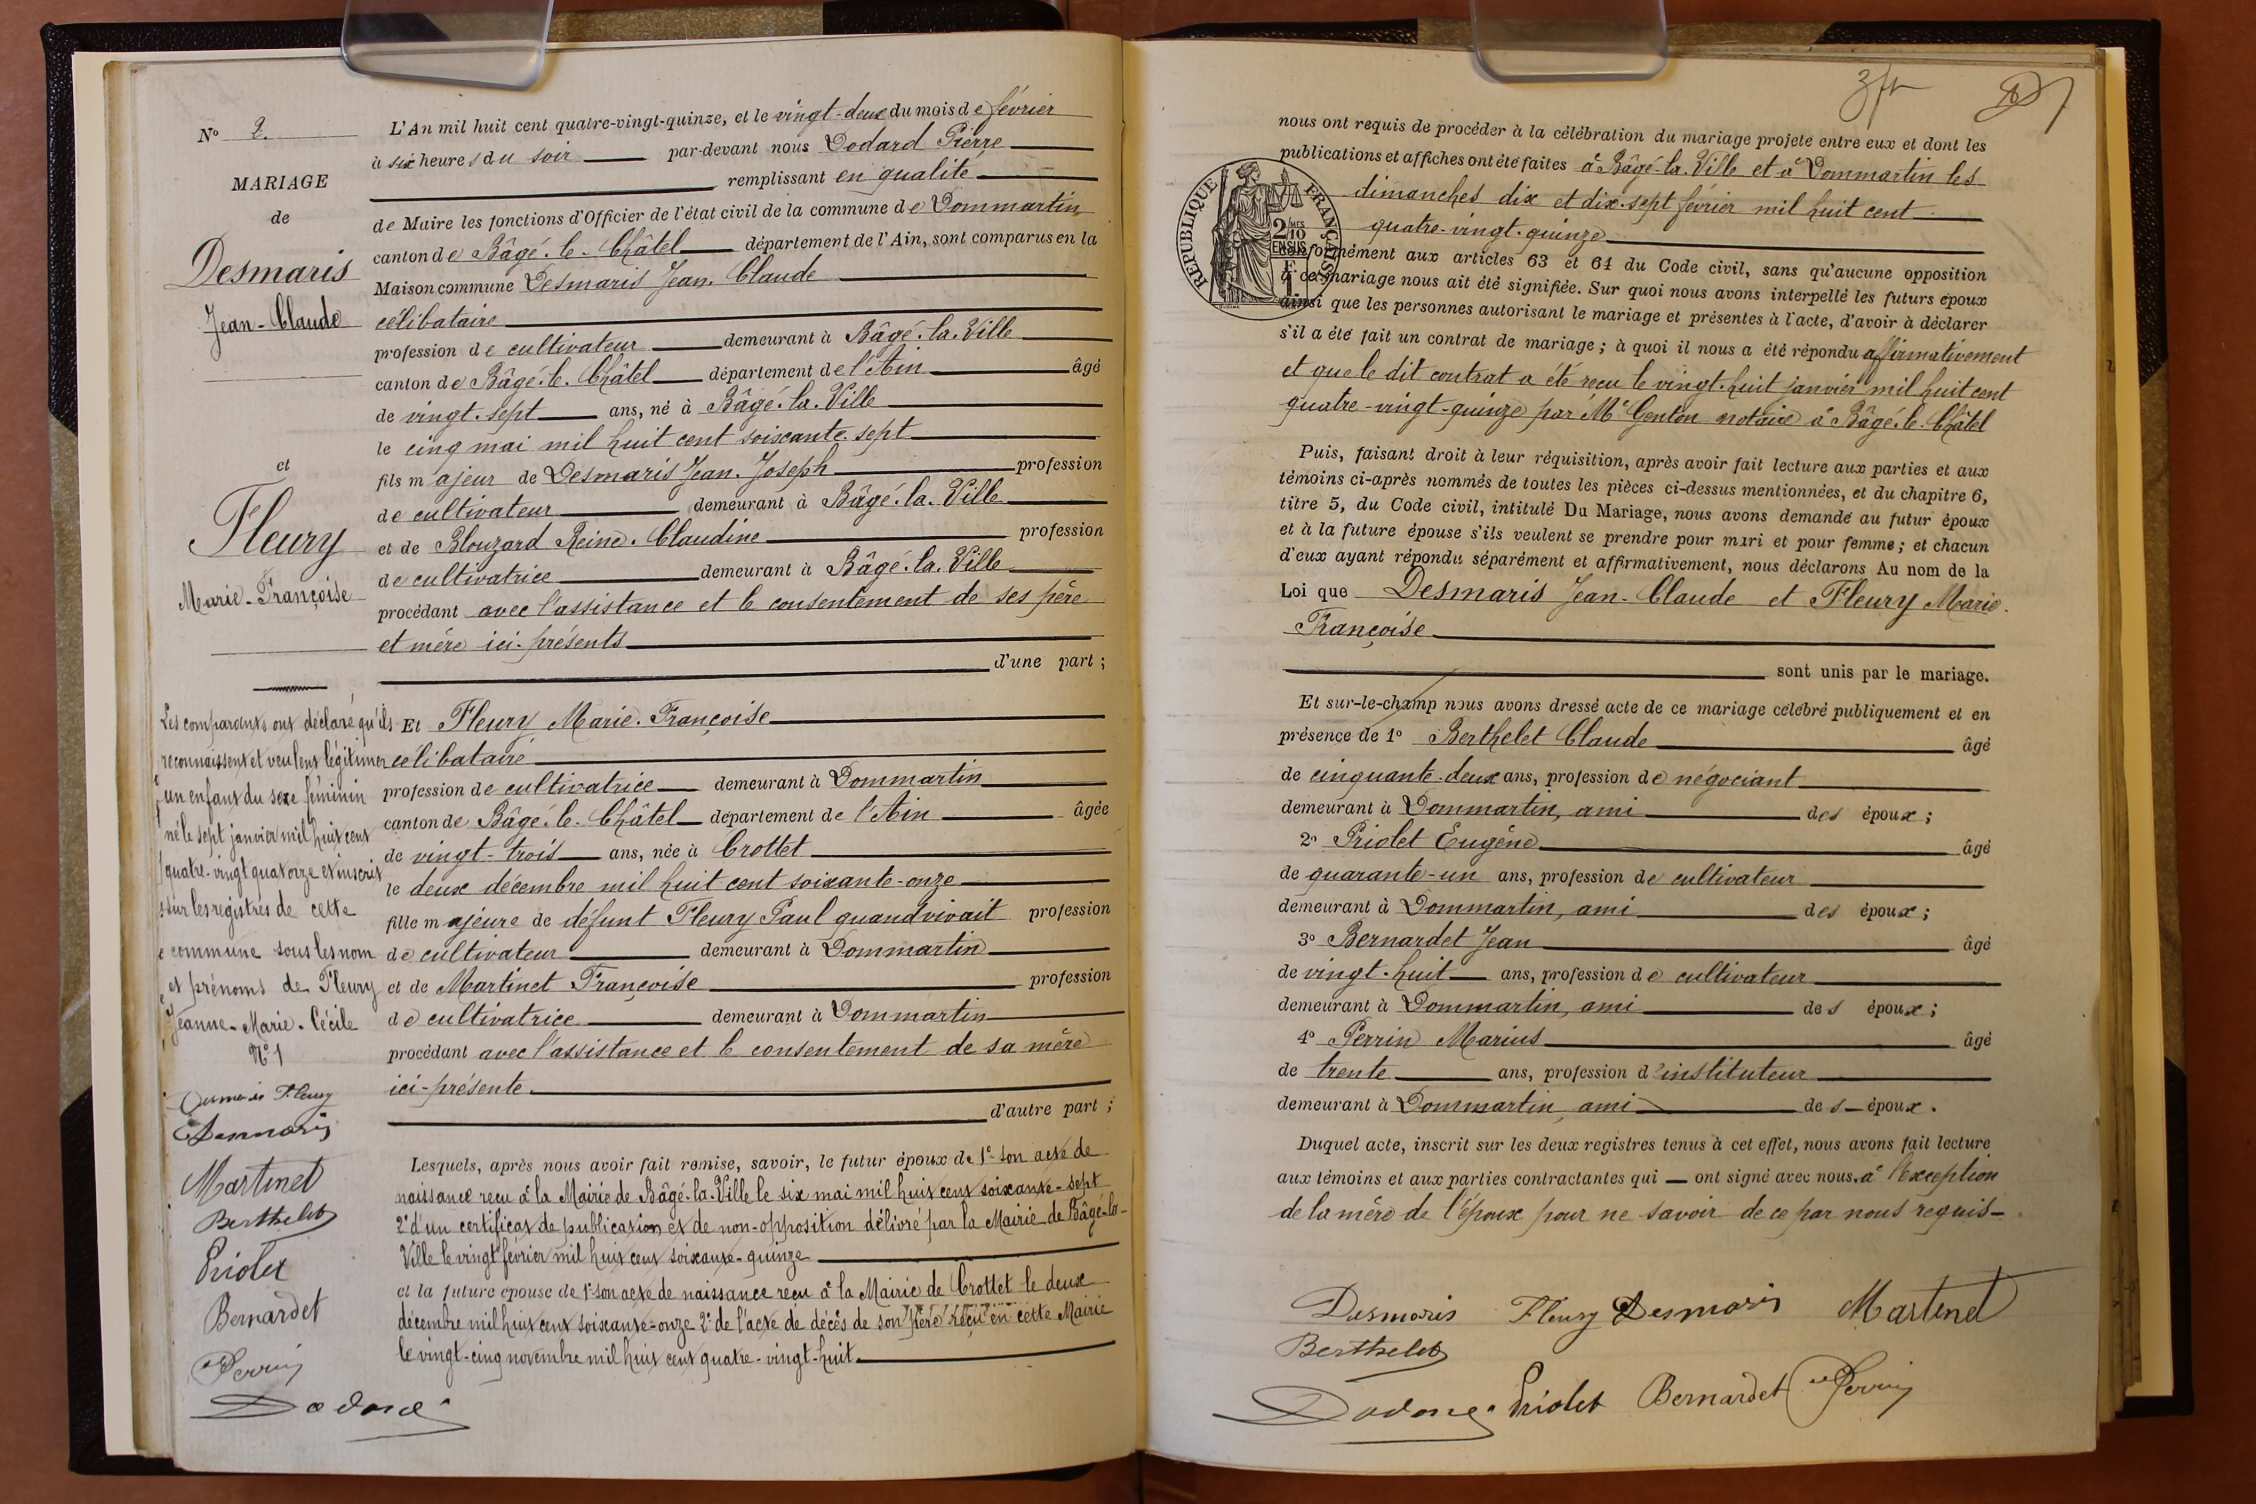 N° 2.
MARIAGE
de
Desmaris
Jean-Claude
et
Fleury
Marie-Françoise
Les comparants ont déclaré qu'ils
reconnaissent et veulent légitimer
un enfant du sexe féminin
né le sept janvier mil huit cent
quatre-vingt quatorze et inscrit
sur les registres de cette
commune sous les nom
et prénoms de Fleury
Jeanne-Marie-Cécile
N° 1
Desmaris Fleury
Desmaris
Martinet
Berthelet
Priolet
Bernardet
Perrin
Dodard
L'An mil huit cent quatre-vingt-quinze, et le vingt-deux du mois de février
à six heures du soir par-devant nous Dodard Pierre
remplissant en qualité
de Maire les fonctions d'Officier de l'état civil de la commune de Dommartin
canton de Bâgé-le-Châtel département de l'Ain, sont comparus en la
Maison commune Desmaris Jean-Claude
célibataire
profession de cultivateur demeurant à Bâgé-la-Ville
canton de Bâgé-le-Châtel département de l'Ain âgé
de vingt-sept ans, né à Bâgé-la-Ville
le cinq mai mil huit cent soixante-sept
fils majeur de Desmaris Jean-Joseph profession
de cultivateur demeurant à Bâgé-la-Ville
et de Blouzard Reine-Claudine profession
de cultivatrice demeurant à Bâgé-la-Ville
procédant avec l'assistance et le consentement de ses père
et mère ici-présents
d'une part ;
Et Fleury Marie-Françoise
célibataire
profession de cultivatrice demeurant à Dommartin
canton de Bâgé-le-Châtel département de l'Ain âgée
de vingt-trois ans, née à Crottet
le deux décembre mil huit cent soixante-onze
fille majeure de défunt Fleury Paul quand vivait profession
de cultivateur demeurant à Dommartin
et de Martinet Françoise profession
de cultivatrice demeurant à Dommartin
procédant avec l'assistance et le consentement de sa mère
ici-présente
d'autre part ;
Lesquels, après nous avoir fait remise, savoir, le futur époux de 1° son acte de
naissance reçu à la Mairie de Bâgé-la-Ville le six mai mil huit cent soixante-sept
2° d'un certificat de publication et de non-opposition délivré par la Mairie de Bâgé-la-
Ville le vingt février mil huit cent soixante-quinze
et la future épouse de 1° son acte de naissance reçu à la Mairie de Crottet le deux
décembre mil huit cent soixante-onze 2° de l'acte de décès de son père reçu en cette Mairie
le vingt-cinq novembre mil huit cent quatre-vingt-huit.
nous ont requis de procéder à la célébration du mariage projeté entre eux et dont les
publications et affiches ont été faites à Bâgé-la-Ville et à Dommartin les
dimanches dix et dix-sept février mil huit cent
quatre-vingt-quinze
conformément aux articles 63 et 64 du Code civil, sans qu'aucune opposition
à ce mariage nous ait été signifiée. Sur quoi nous avons interpellé les futurs époux
ainsi que les personnes autorisant le mariage et présentes à l'acte, d'avoir à déclarer
s'il a été fait un contrat de mariage ; à quoi il nous a été répondu affirmativement
et que le dit contrat a été reçu le vingt-huit janvier mil huit cent
quatre-vingt-quinze par Me Genton notaire à Bâgé-le-Châtel
RÉPUBLIQUE FRANÇAISE
2/10 MES
EN SUS
Puis, faisant droit à leur réquisition, après avoir fait lecture aux parties et aux
témoins ci-après nommés de toutes les pièces ci-dessus mentionnées, et du chapitre 6,
titre 5, du Code civil, intitulé Du Mariage, nous avons demandé au futur époux
et à la future épouse s'ils veulent se prendre pour mari et pour femme ; et chacun
d'eux ayant répondu séparément et affirmativement, nous déclarons Au nom de la
Loi que Desmaris Jean-Claude et Fleury Marie-
Françoise
sont unis par le mariage.
Et sur-le-champ nous avons dressé acte de ce mariage célébré publiquement et en
présence de 1° Berthelet Claude âgé
de cinquante-deux ans, profession de négociant
demeurant à Dommartin, ami des époux ;
2° Priolet Eugène âgé
de quarante-un ans, profession de cultivateur
demeurant à Dommartin, ami des époux ;
3° Bernardet Jean âgé
de vingt-huit ans, profession de cultivateur
demeurant à Dommartin, ami des époux ;
4° Perrin Marius âgé
de trente ans, profession d'instituteur
demeurant à Dommartin ami des époux.
Duquel acte, inscrit sur les deux registres tenus à cet effet, nous avons fait lecture
aux témoins et aux parties contractantes qui ont signé avec nous, à l'exception
de la mère de l'époux pour ne savoir de ce par nous requis
Desmaris Fleury Desmaris Martinet
Berthelet
Dodard Priolet Bernardet Perrin